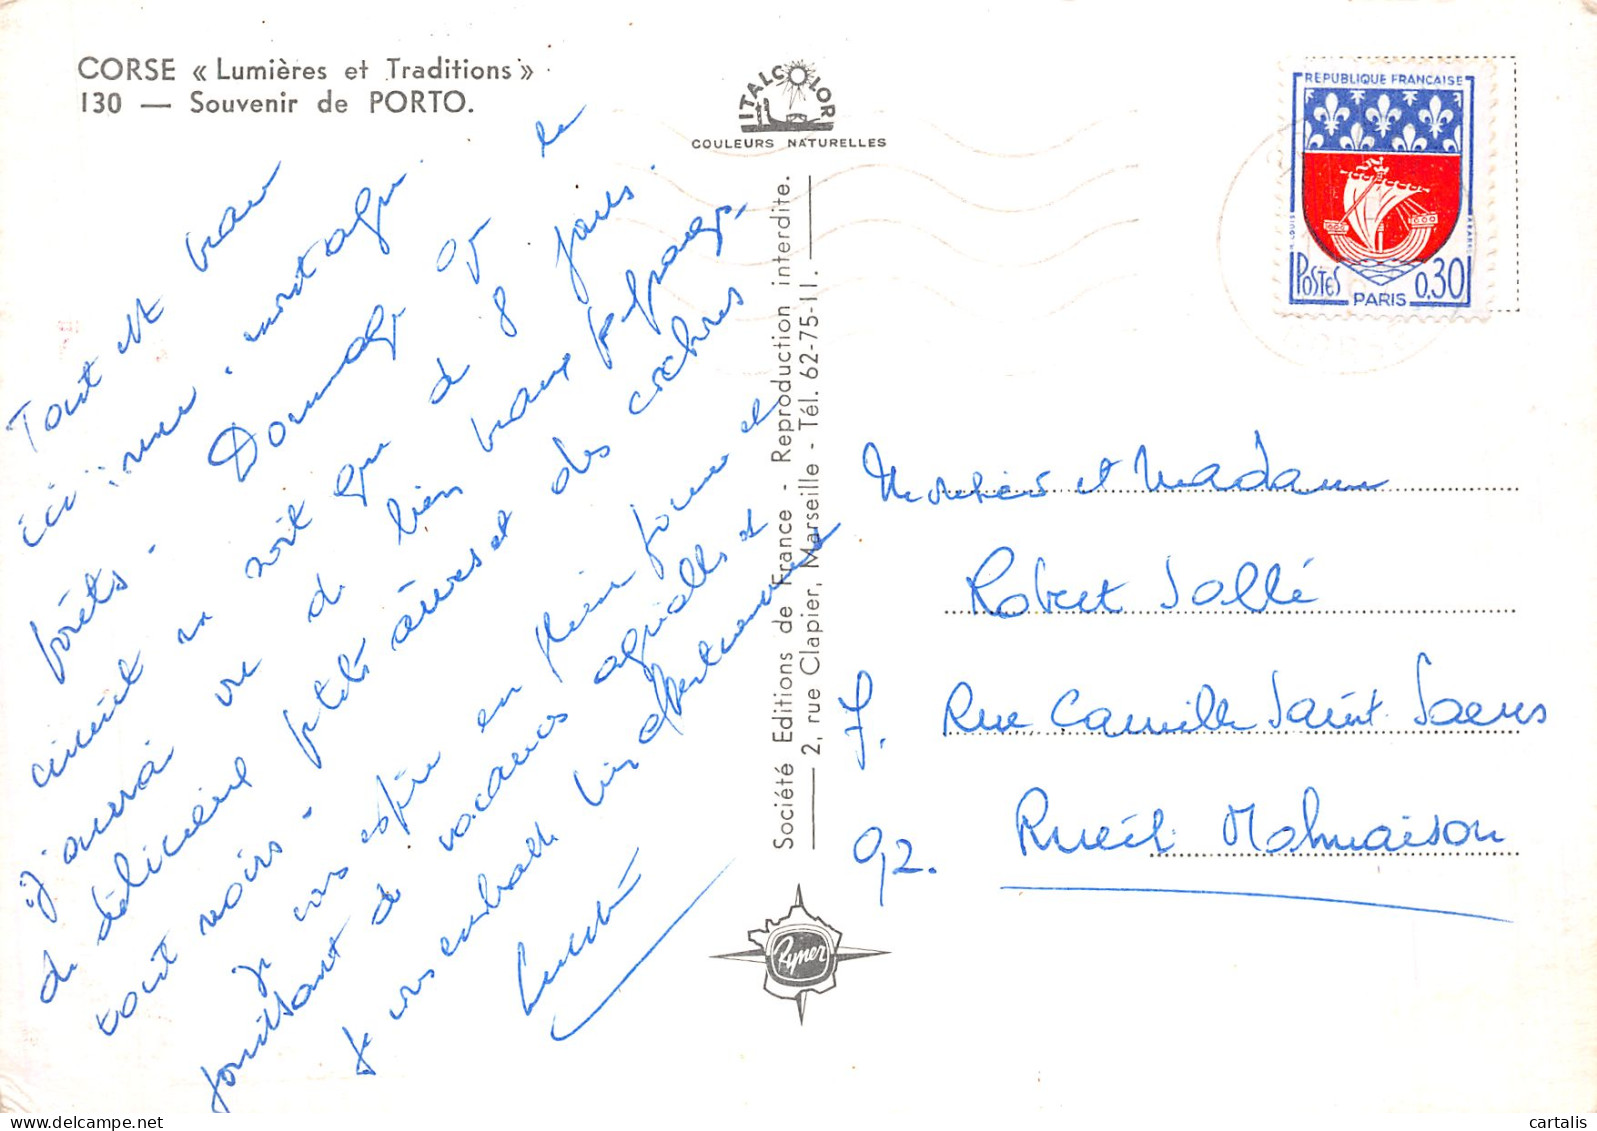 CORSE « Lumières et Traditions »
130 — Souvenir de PORTO.
ITALCOLOR
COULEURS NATURELLES
REPUBLIQUE FRANÇAISE
POSTES
0,30
PARIS
Tout est beau
ici : mer, montagne
forêts - Dommage que le
circuit ne soit que de 8 jours.
j'aurai vu de bien beaux paysages,
de délicieux petits ânes et des cochons
tout noirs -
Je vous espère en pleine forme et
jouissant de vacances agréables et
Je vous embrasse bien affectueusement
Société Editions de France - Reproduction interdite.
2, rue Clapier, Marseille - Tél. 62-75-11.
Rymer
Monsieur et Madame
Robert Jollé
7. Rue Camille Saint-Saens
92. Rueil Malmaison
cartalis.com